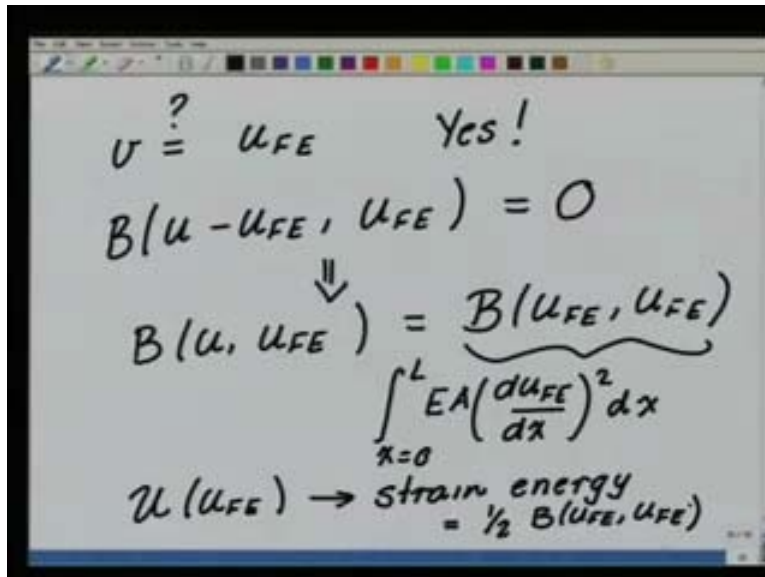 v ?= u_FE Yes!
B(u - u_FE, u_FE) = 0
⇓
B(u, u_FE) = B(u_FE, u_FE)
∫_{x=0}^{L} EA(du_FE/dx)^2 dx
U(u_FE) → strain energy
= 1/2 B(u_FE, u_FE)